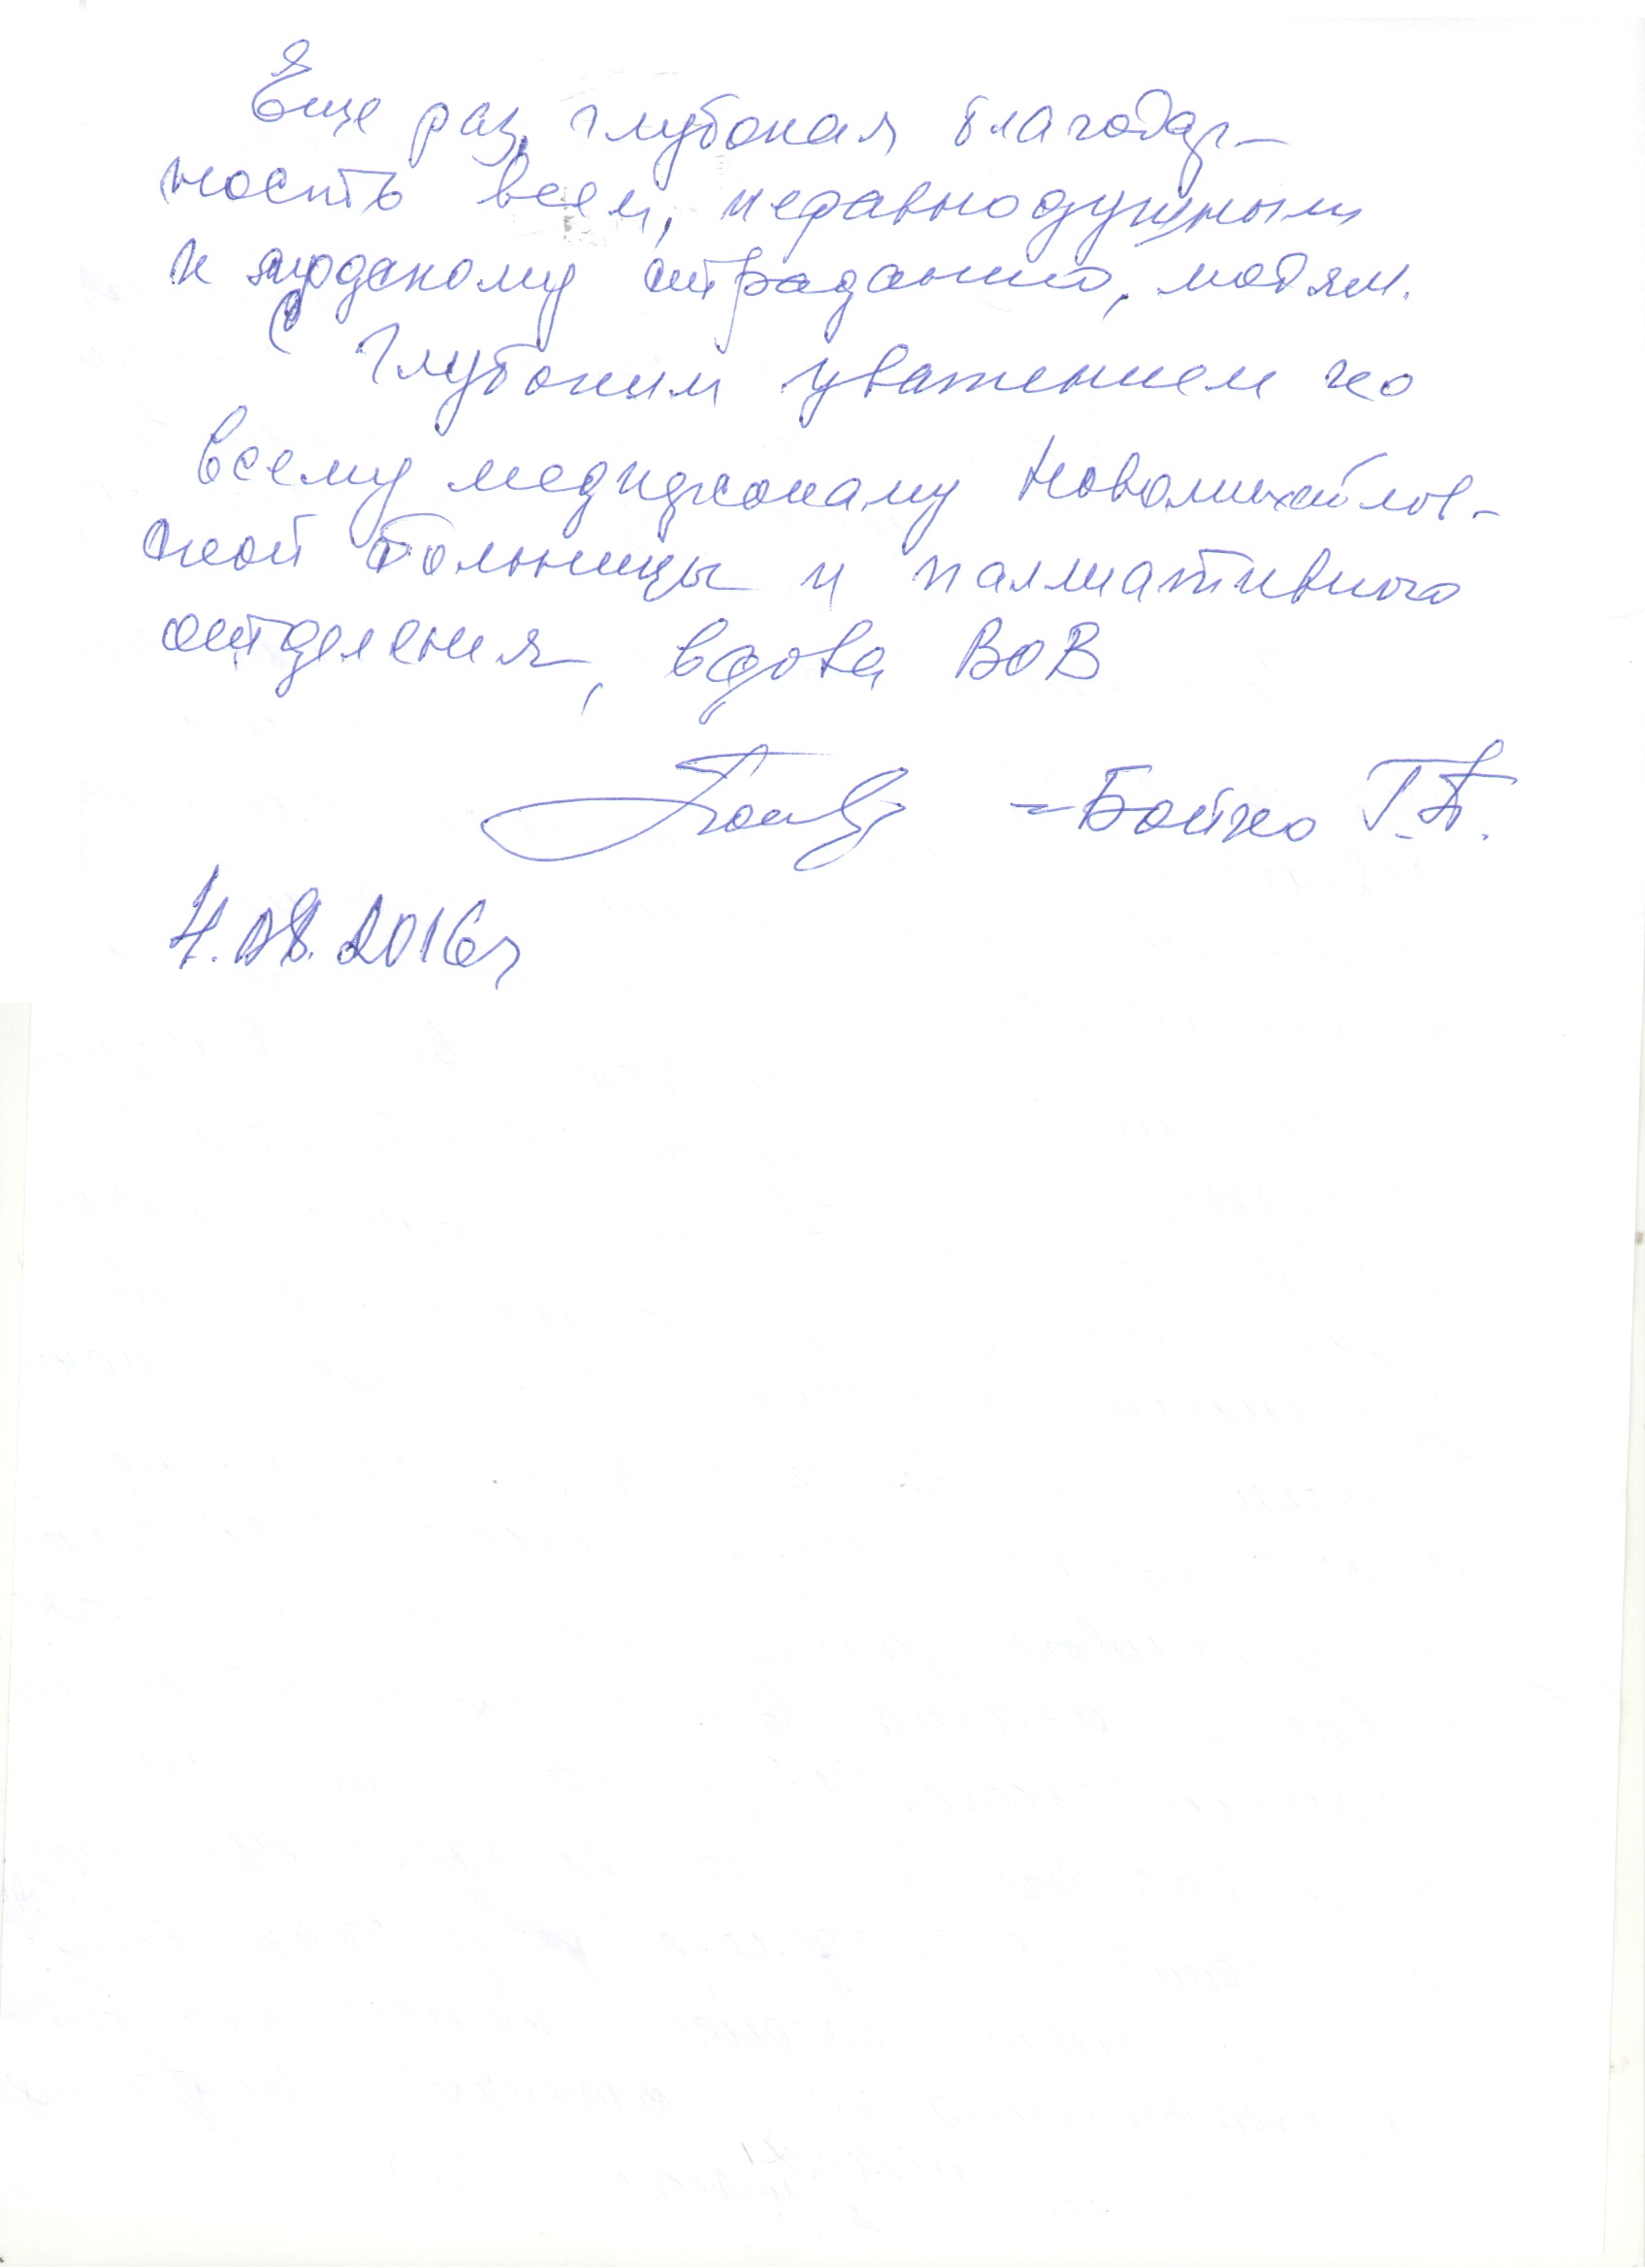 Еще раз, глубокая благодар-
ность всем, неравнодушным
к людскому страданию, людям.
С глубоким уважением ко
всему медперсоналу Новомихайлов-
ской больницы и паллиативного
отделения, вдова ВОВ
- Бойко Г.А.
4.08.2016г